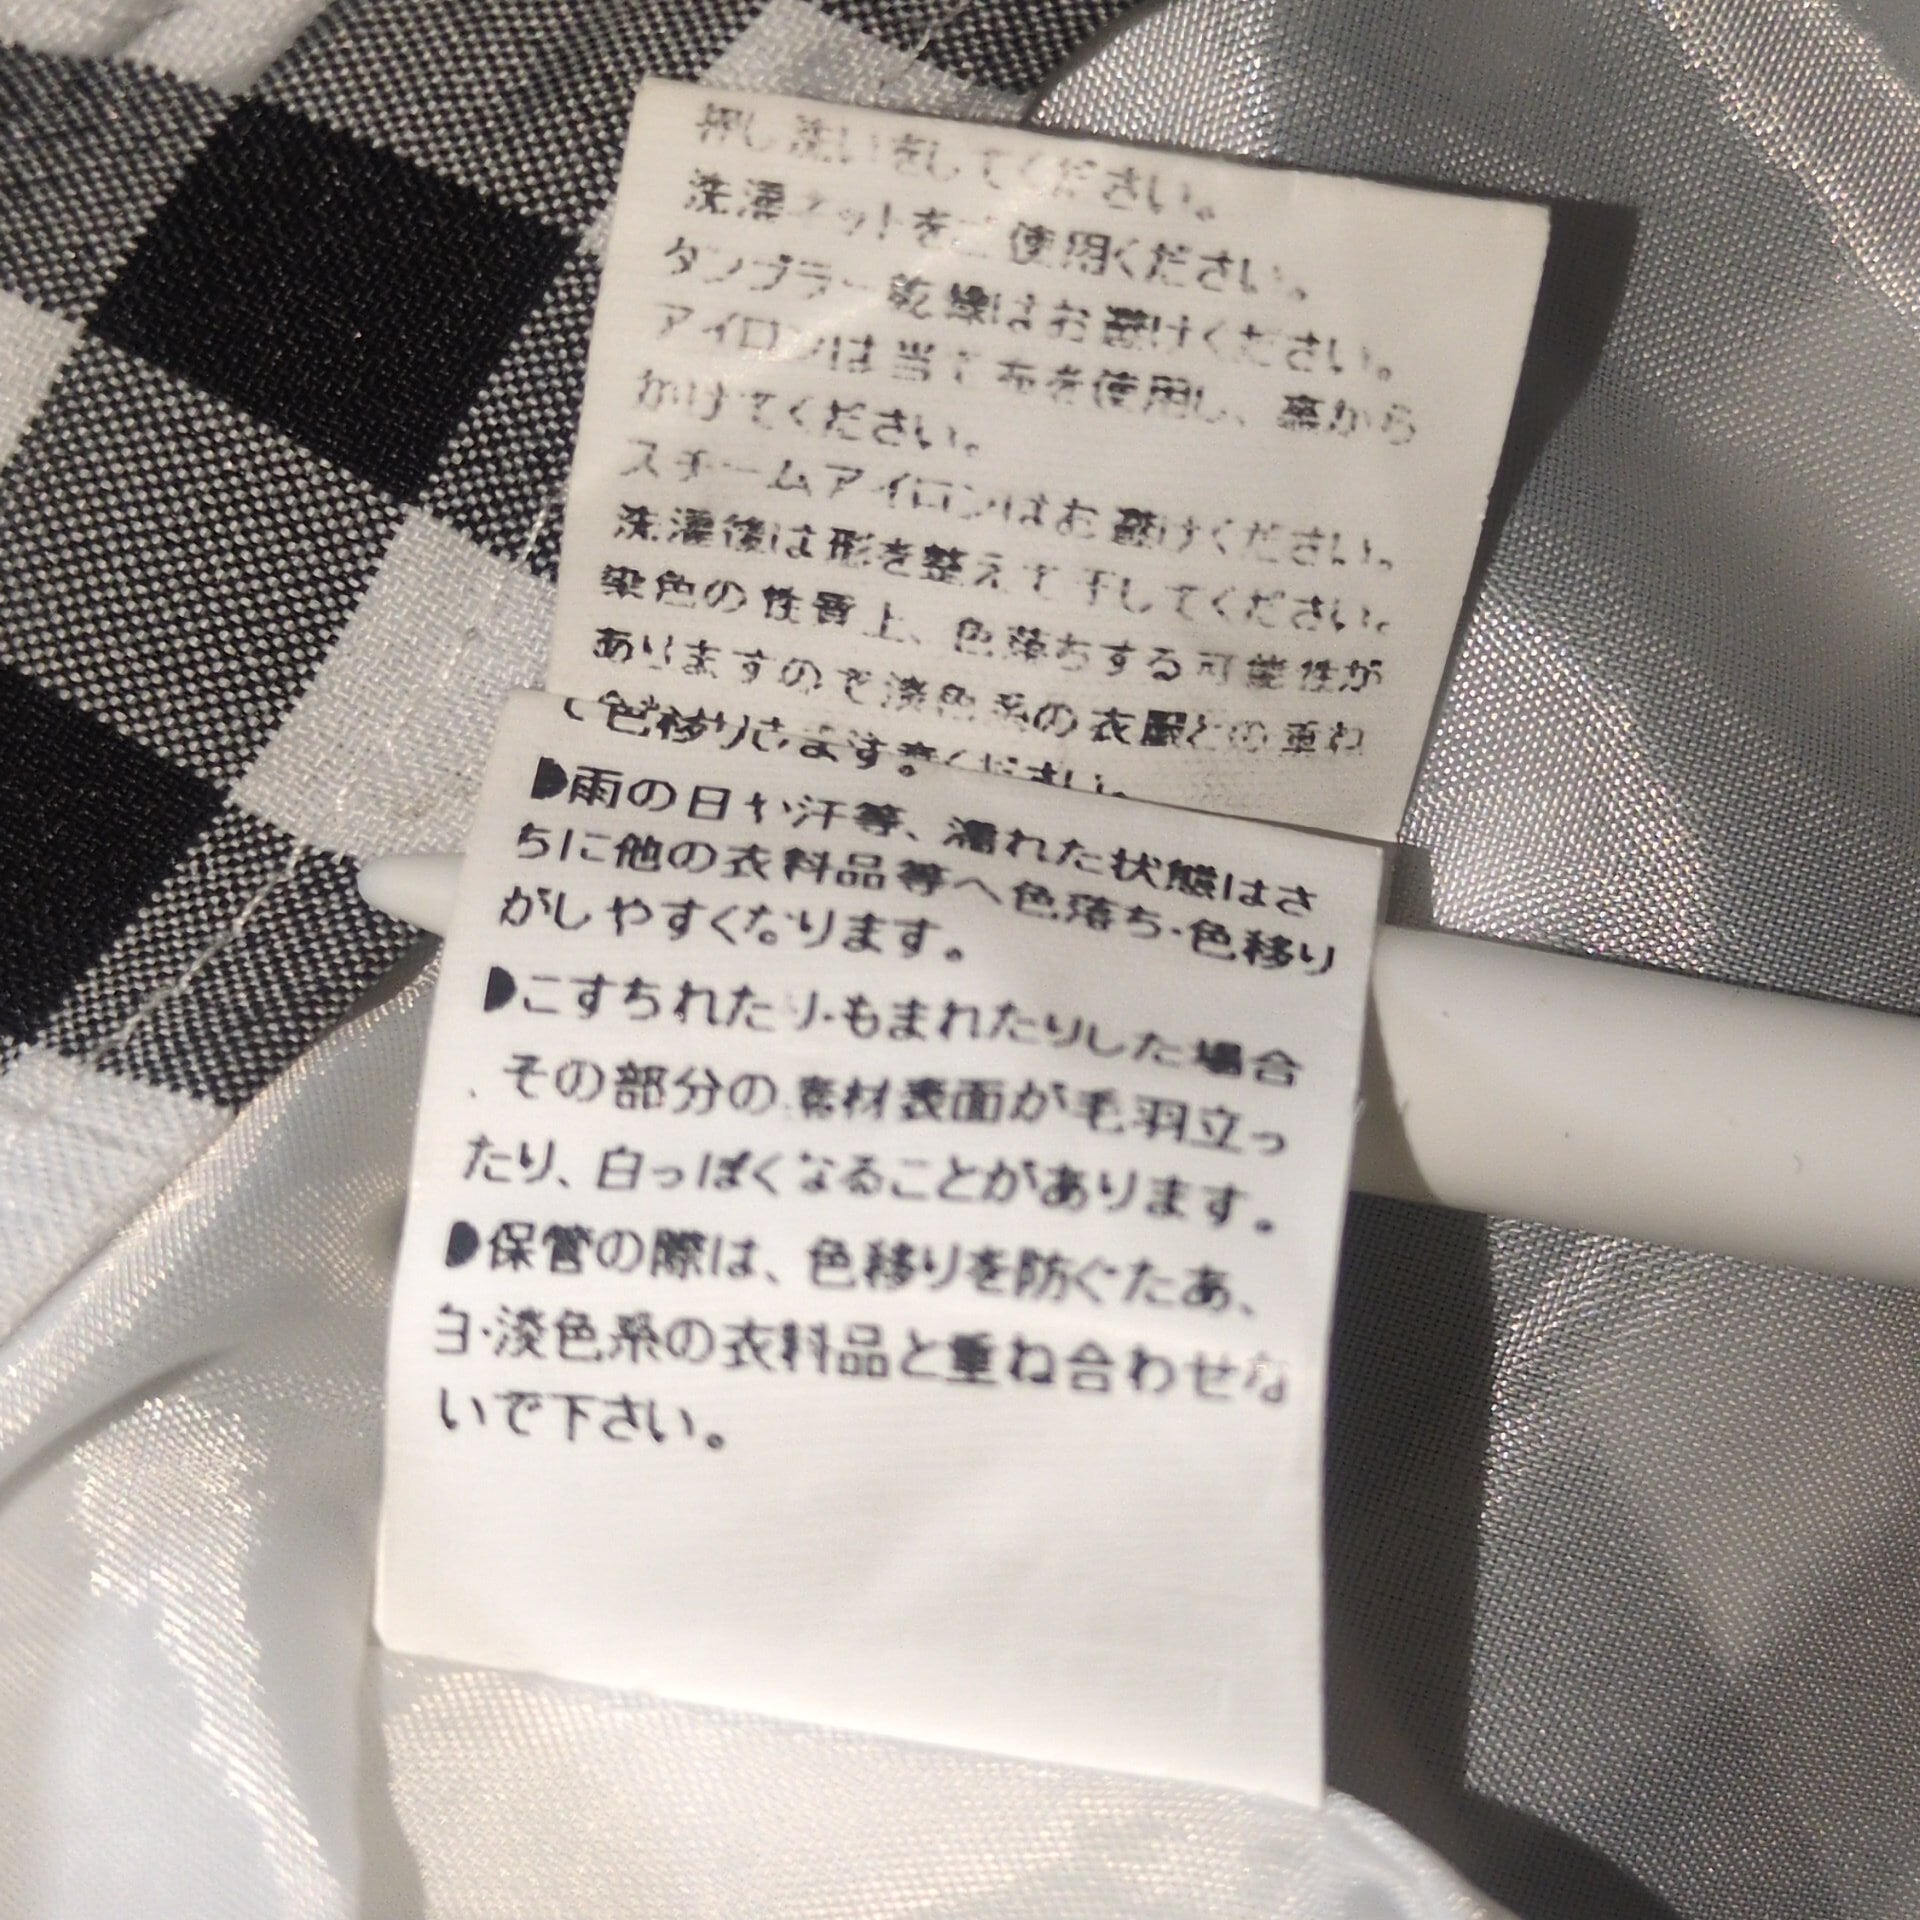 押し洗いをしてください。
洗濯ネットをご使用ください。
タンブラー乾燥はお避けください。
アイロンは当て布を使用し、裏から
かけてください。
スチームアイロンはお避けください。
洗濯後は形を整えて干してください。
染色の性質上、色落ちする可能性が
ありますので淡色系の衣服との重ね
て色移りします。ください。
◗雨の日や汗等、濡れた状態はさ
らに他の衣料品等へ色落ち・色移り
がしやすくなります。
◗こすられたり・もまれたりした場合
、その部分の素材表面が毛羽立っ
たり、白っぽくなることがあります。
◗保管の際は、色移りを防ぐため、
白・淡色系の衣料品と重ね合わせな
いで下さい。